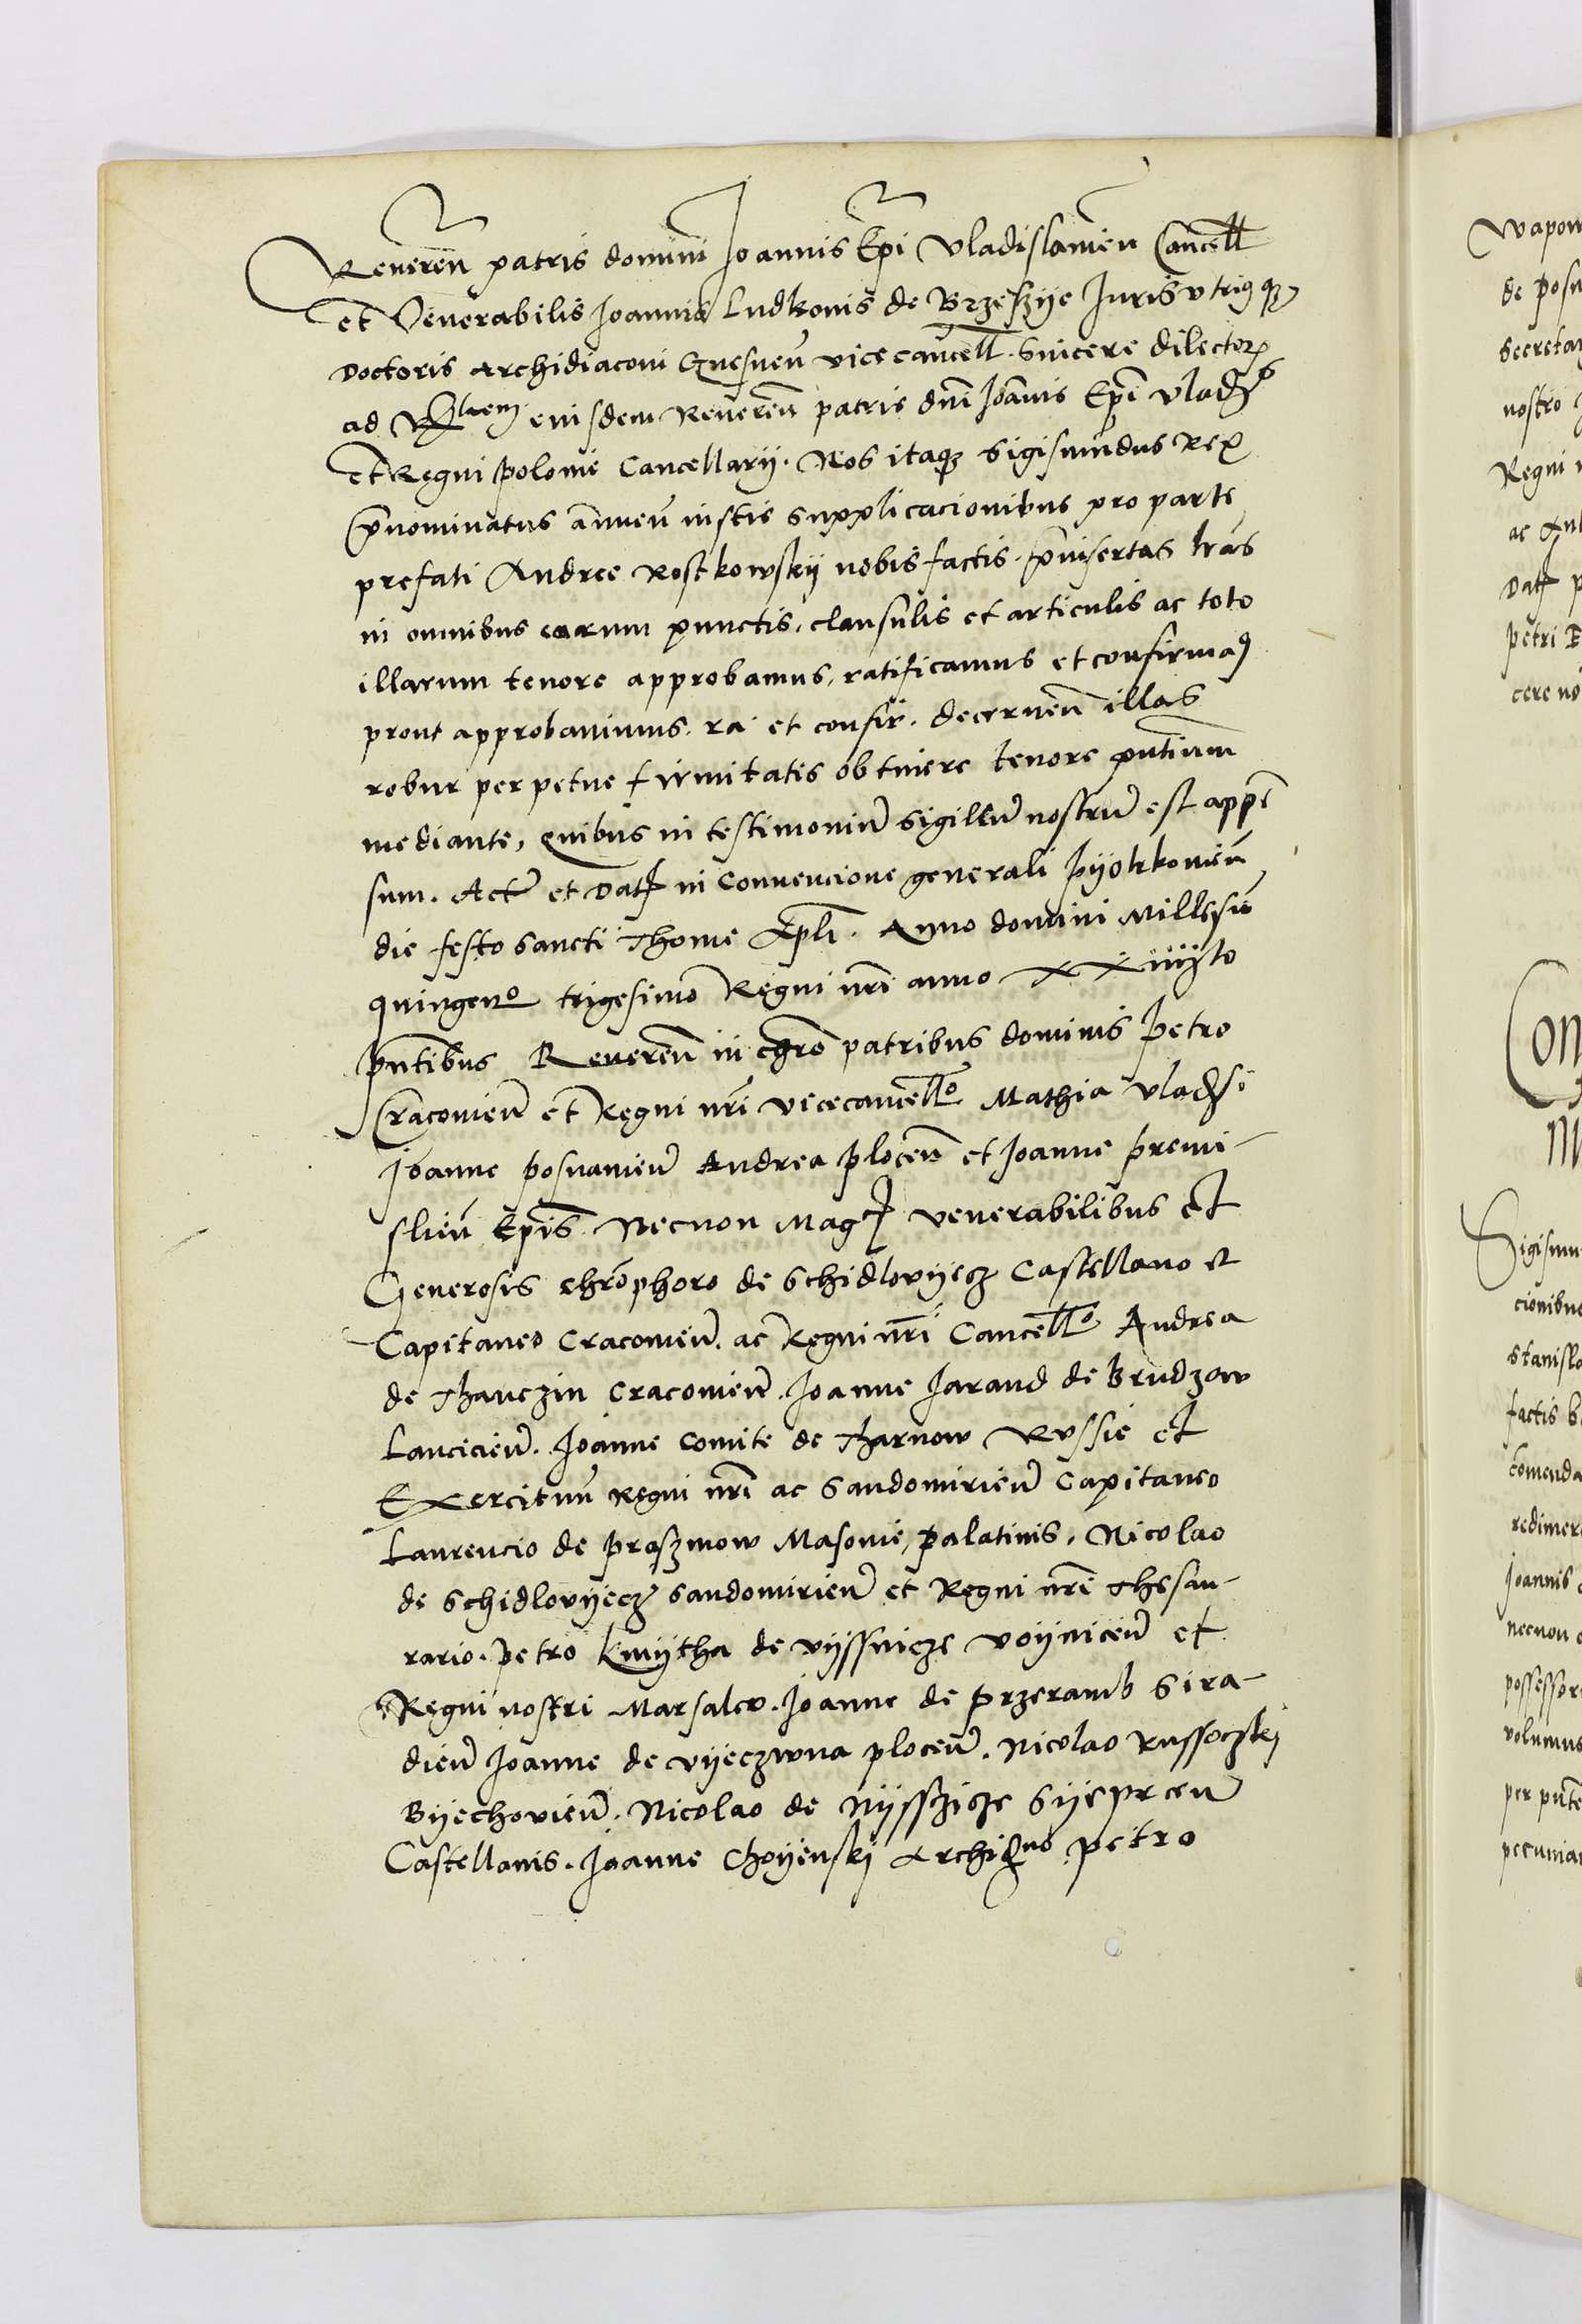 Reueren̄ patris domini Joannis Ep̄i Vladislauien̄ Cancell
et Venerabilis Joannis Ludkonis de Brzeszye Juris vtriusq3
Doctoris Archidiaconi Gnesnen̄ vicecan̄cell. Sincere dilector
ad eiusdem Reueren̄ patris dn̄i Joān̄is Ep̄i Vlad
et Regni polonie Cancellarij. Nos itaq3 Sigismundus Rex
p̄nominatus an̄uen̄ iustis supplicacionibus pro parte
prefati Andree Rostkowskij nobis factis. p̄insertas lr̄as
in omnibus earum punctis, clausulis et articulis ac toto
illarum tenore approbamus, ratificamus et confirmaꝯ
prout approbauimus. ra et confir. decernen̄ illas
robur perpetue firmitatis obtinere tenore pn̄tium
mediante, quibus in testimoniū sigillū nostrū est appēn
sum. Actū et Dat in Conuencione generali pyotrkouien̄
die festo sancti Thome Apl̄i. Anno domini Millesiō
quingen̄o trigesimo Regni nr̄i anno xxiiijto
pn̄tibus Reueren̄ in chro patribus dominis Petro
Cracouien̄ et Regni nr̄i vicecancell̄o Mathia Vladsi
Joanne posnanien̄ Andrea plocen̄ et Joanne premi-
slien̄ Ep̄is. Necnon Mag venerabilibus et
Generosis chrōphoro de Schidlovyecz Castellano et
Capitaneo Cracouien̄. ac Regni nr̄i Cancell̄o Andrea
de Thanczin Cracouien̄. Joanne Jarand de Brudzow
Lancicien̄. Joanne comite de Tharnow Russie et
Exercituū Regni nr̄i ac Sandomirien̄ Capitaneo
Laurencio de prazmow Masouie, palatinis, Nicolao
de Schidlovyecz Sandomirien̄ et Regni nr̄i Thesau-
rario. Petro Kmytha de vyssnicze voynicen̄ et
Regni nostri Marsalco. Joanne de przeramb Sira-
dien̄ Joanne de vyeczwna plocen̄. Nicolao Russoczki
Byechovien̄. Nicolao de Nysszicze Syeprcen̄
Castellanis. Joanne Choyenski Archidno Petro
Wapow
de posn
secretar
nostro
Regni
ac
Dat p
petri
cere no
Con
Sigismu
cionibus
stanisla
factis
comenda
redimer
Joannis
necnon
possessor
volumus
per pn̄te
pecunia